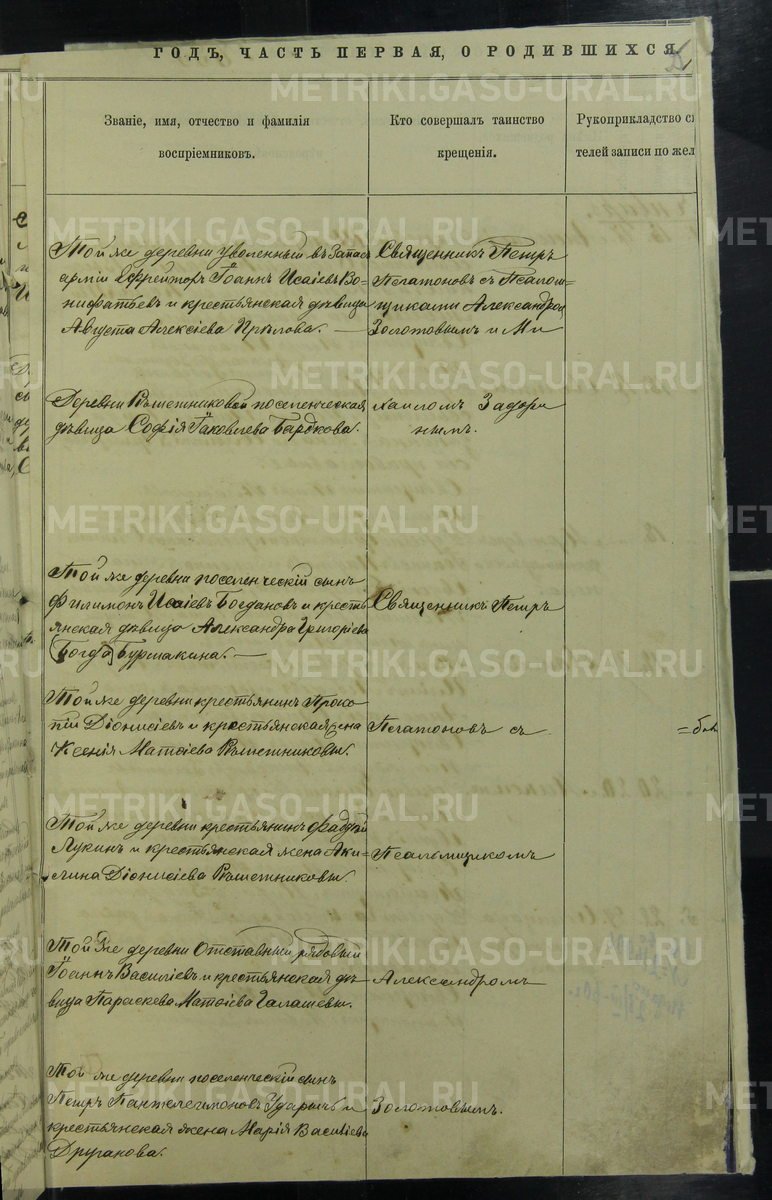 ГОДЪ, ЧАСТЬ ПЕРВАЯ, О РОДИВШИХСЯ
Званіе, имя, отчество и фамилія
воспріемниковъ.
Кто совершалъ таинство
крещенія.
Рукоприкладство
телей записи по жел
Той же деревни уволенный въ запасъ
арміи Ефрейторъ Іоаннъ Исаіевъ Во-
нифатьевъ и крестьянская дѣвица
Августа Алексіева
Священникъ Петръ
Пегатоновъ съ Псалом-
щиками Александром
Золотовымъ и Ми
Деревни Рѣшетниковой поселенческая
дѣвица Софія Іаковлева Бардкова.
хаиломъ Задори
нымъ.
Той же деревни поселенческій сынъ
Филимонъ Исаіевъ Богдановъ и кресть
янская дѣвица Александра Григоріева
(Богда) Бурмакина.
Священникъ Петръ
Той же деревни крестьянинъ Проко-
пій Діонисіевъ и крестьянская жена
Ксенія Матѳіева Рѣшетниковы.
Пегатоновъ съ
Той же деревни крестьянинъ Ѳаддей
Лукинъ и крестьянская жена Аки-
лина Діонисіева Рѣшетниковы.
Псаломщикомъ
Той же деревни Отставный рядовый
Іоаннъ Василіевъ и крестьянская дѣ-
вица Параскева Матѳіева Галашевы.
Александромъ
Той же деревни поселенческій сынъ
Петръ Пантелеимоновъ и
крестьянская жена Марія Василіева
Друганова.
Золотовымъ.
METRIKI.GASO-URAL.RU